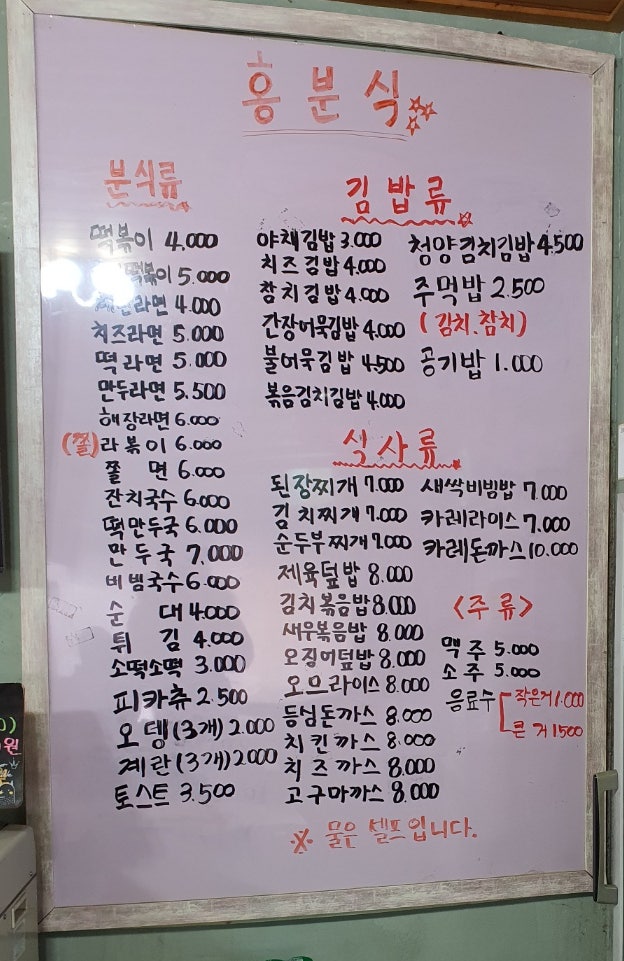 흥분식
분식류
떡볶이 4.000
떡볶이 5.000
라면 4.000
치즈라면 5.000
떡라면 5.000
만두라면 5.500
해장라면 6.000
(쫄)라볶이 6.000
쫄 면 6.000
잔치국수 6.000
떡만두국 6.000
만두국 7,000
비빔국수 6.000
순 대 4.000
튀 김 4.000
소떡소떡 3.000
피카츄 2.500
오뎅(3개) 2.000
계란(3개) 2000
토스트 3.500
김밥류
야채김밥 3.000
치즈김밥 4.000
참치김밥 4.000
간장어묵김밥 4.000
불어묵김밥 4.500
볶음김치김밥 4.000
청양김치김밥 4.500
주먹밥 2.500
(김치.참치)
공기밥 1.000
식사류
된장찌개 7.000
김치찌개 7.000
순두부찌개 7.000
제육덮밥 8.000
김치볶음밥 8.000
새우볶음밥 8.000
오징어덮밥 8.000
오므라이스 8.000
등심돈까스 8.000
치킨까스 8.000
치즈까스 8.000
고구마까스 8.000
새싹비빔밥 7.000
카레라이스 7.000
카레돈까스 10.000
<주류>
맥주 5.000
소주 5.000
음료수 작은거 1.000
큰거 1500
※ 물은 셀프입니다.